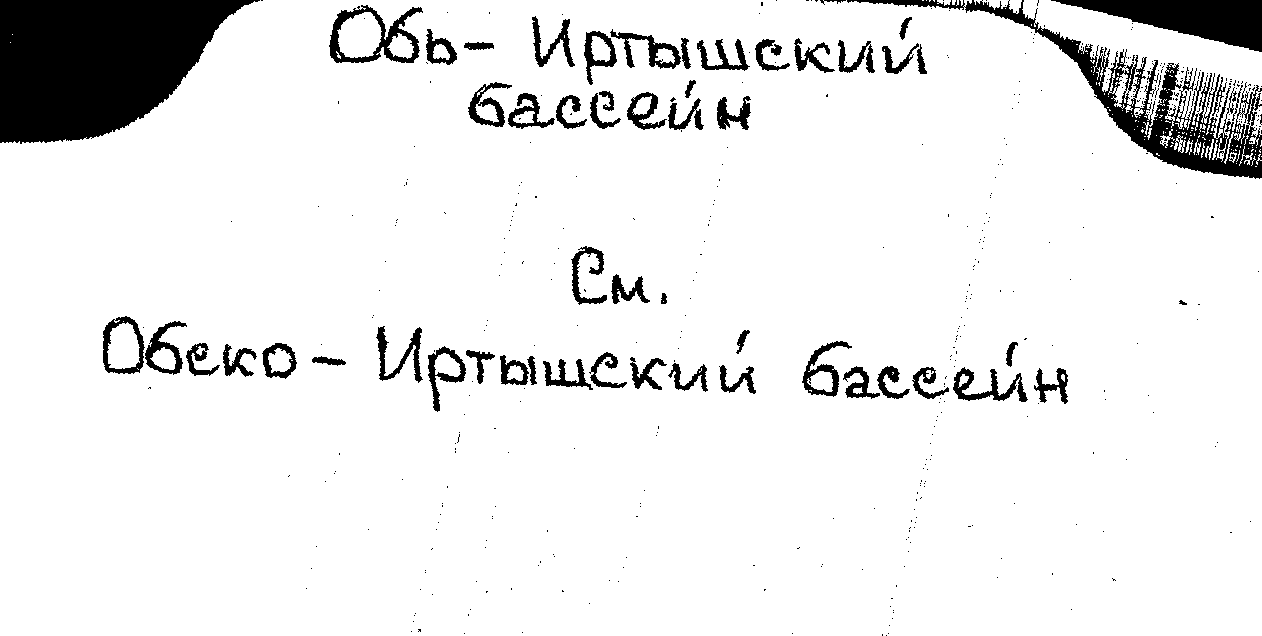 Обь- Иртышский
бассейн
См.
Обско - Иртышский бассейн